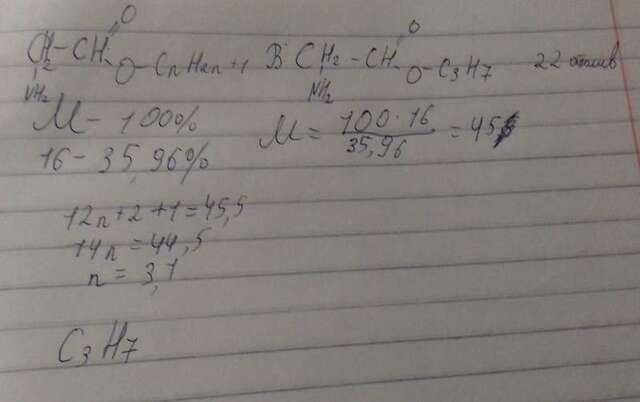 CH2-CH
O
O-CnH2n+1
NH2
B CH2-CH
O
O-C3H7
NH2
22
M - 100%
16 - 35,96%
M = 100·16 / 35,96 = 45
12n+2+1=45,5
14n=44,5
n = 3,1
C3H7